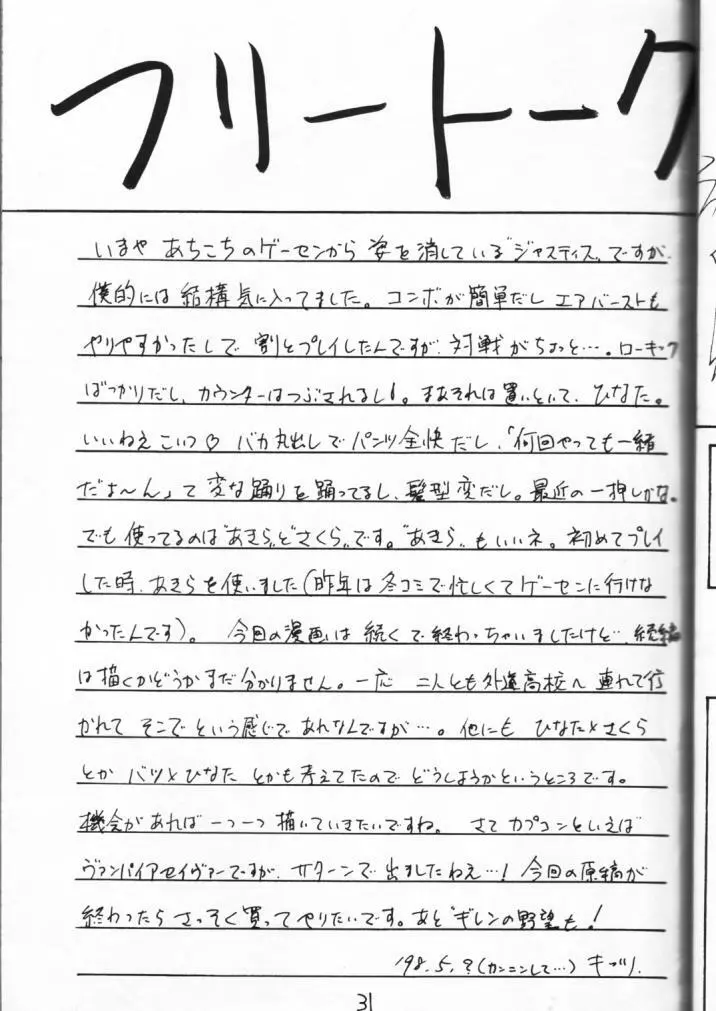 フリートーク
いまや あちこちのゲーセンから 姿を消している〝ジャスティス〟ですが、
僕的には 結構 気に入ってました。コンボが簡単だし エアバーストも
やりやすかったしで 割とプレイしたんですが、対戦がちょっと…。ローキック
ばっかりだし、カウンターはつぶされるし!。まあそれは置いといて、ひなた。
いいねえこいつ♡ バカ丸出しで パンツ全快だし、「何回やっても一緒
だよ〜ん」って 変な踊りを踊ってるし、髪型変だし。最近の一押しかな。
でも使ってるのは〝あきら〟と〝さくら〟です。〝あきら〟もいいネ。初めてプレイ
した時、あきらを使いました(昨年は冬コミで忙しくてゲーセンに行けな
かったんです)。 今回の漫画は 続くで終わっちゃいましたけど、続編
は描くかどうかまだ分かりません。一応 二人とも外道高校へ 連れて行
かれて そこで という感じで あれなんですが…。他にも ひなた×さくら
とか バツ×ひなた とかも考えてたので どうしようかというところです。
機会があれば 一つ一つ 描いていきたいですね。 さて カプコンといえば
ヴァンパイアセイヴァーですが、サターンで 出ましたねえ…! 今回の原稿が
終わったら さっそく買ってやりたいです。あと〝ギレンの野望〟も!
'98.5.?(カンニンして…)
31